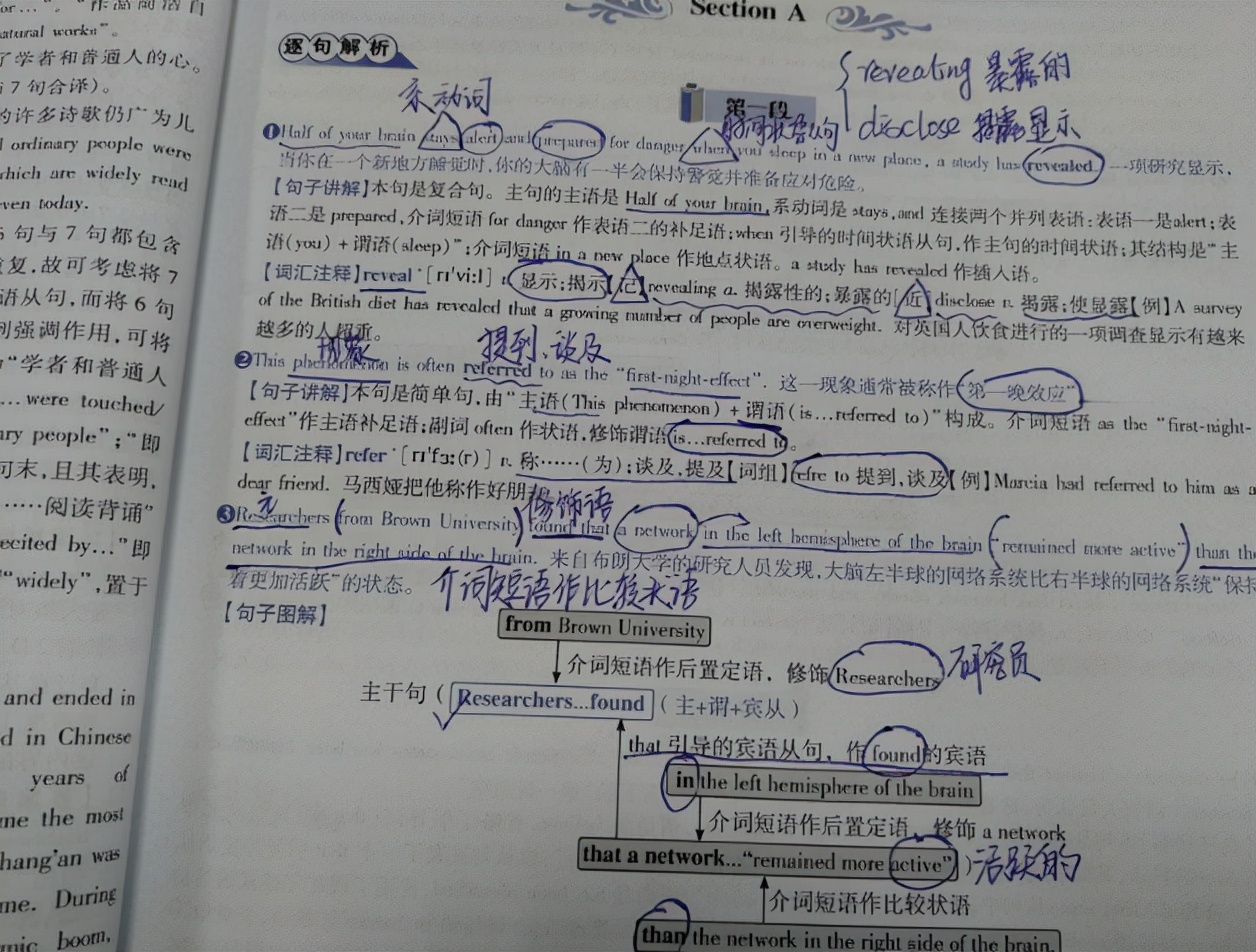 or…"。"作
natural works"。
了学者和普通人的心。
7句合译)。
的许多诗歌仍广为儿
ordinary people were
which are widely read
ven today.
句与7句都包含
复,故可考虑将7
语从句,而将6句
强调作用,可将
"学者和普通人
…were touched/
ary people";"即
可末,且其表明,
……阅读背诵"
ecited by…"即
"widely",置于
and ended in
d in Chinese
years of
me the most
hang'an was
me. During
mic boom,
Section A
逐句解析
revealing 暴露的
系动词
第一段
时间状语从句
disclose 揭露显示
❶Half of your brain stays alert and prepared for danger when you sleep in a new place, a study has revealed. 一项研究显示,
当你在一个新地方睡觉时,你的大脑有一半会保持警觉并准备应对危险。
【句子讲解】本句是复合句。主句的主语是 Half of your brain,系动词是 stays,and 连接两个并列表语:表语一是alert;表
语二是 prepared,介词短语 for danger 作表语二的补足语;when 引导的时间状语从句,作主句的时间状语;其结构是"主
语(you)+谓语(sleep)";介词短语 in a new place 作地点状语。a study has revealed 作插入语。
【词汇注释】reveal [rɪ'viːl] v. 显示;揭示【记】revealing a. 揭露性的;暴露的[近] disclose v. 揭露;使显露【例】A survey
of the British diet has revealed that a growing number of people are overweight. 对英国人饮食进行的一项调查显示有越来
越多的人超重。
现象
提到、谈及
❷This phenomenon is often referred to as the "first-night-effect". 这一现象通常被称作"第一晚效应"
【句子讲解】本句是简单句,由"主语(This phenomenon)+谓语(is…referred to)"构成。介词短语 as the "first-night-
effect"作主语补足语;副词 often 作状语,修饰谓语 is…referred to。
【词汇注释】refer [rɪ'fɜː(r)] v. 称……(为);谈及,提及【词组】refre to 提到,谈及【例】Marcia had referred to him as a
dear friend. 马西娅把他称作好朋
主
修饰语
❸Researchers from Brown University found that a network in the left hemisphere of the brain "remained more active" than the
network in the right side of the brain. 来自布朗大学的研究人员发现,大脑左半球的网络系统比右半球的网络系统"保持
着更加活跃"的状态。
介词短语作比较状语
【句子图解】
from Brown University
介词短语作后置定语,修饰 Researchers
研究员
主干句(Researchers…found(主+谓+宾从)
that 引导的宾语从句,作 found 的宾语
in the left hemisphere of the brain
介词短语作后置定语,修饰 a network
that a network…"remained more active")
活跃的
介词短语作比较状语
than the network in the right side of the brain.